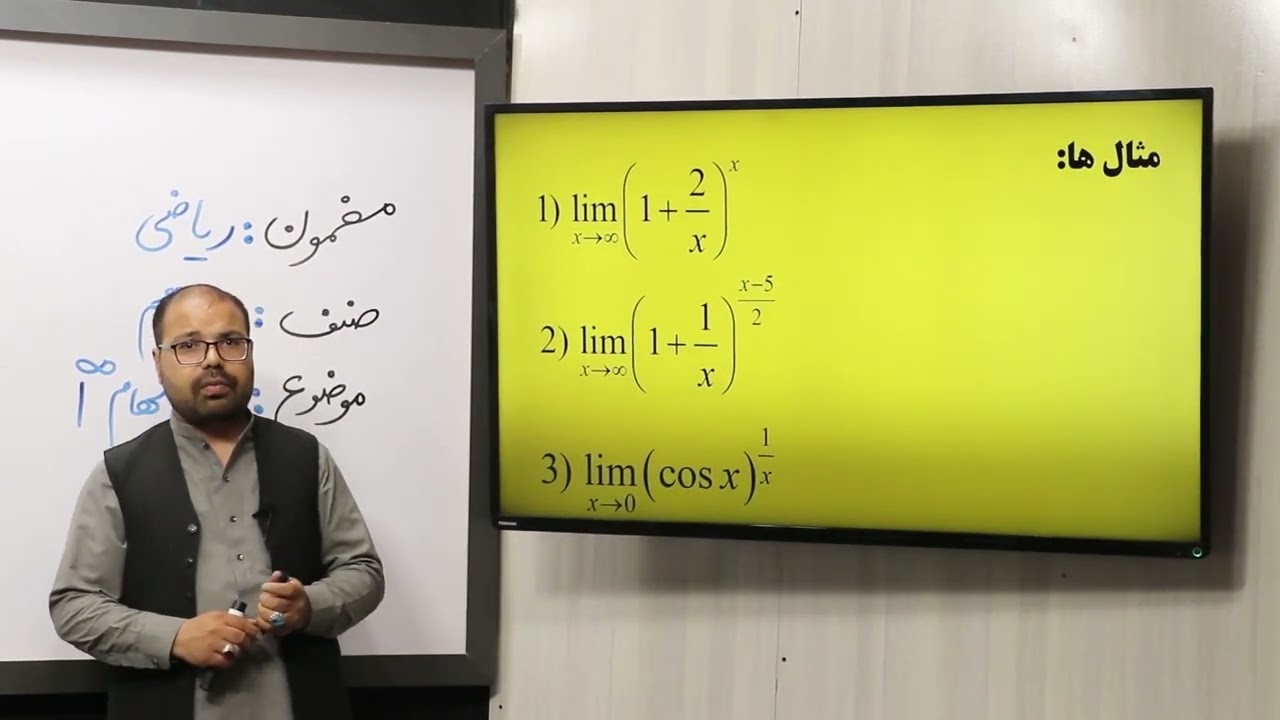 مضمون: ریاضی
صنف:
موضوع: 1^∞
مثال ها:
1) lim x→∞ (1 + 2/x)^x
2) lim x→∞ (1 + 1/x)^((x−5)/2)
3) lim x→0 (cos x)^(1/x)
TOSHIBA